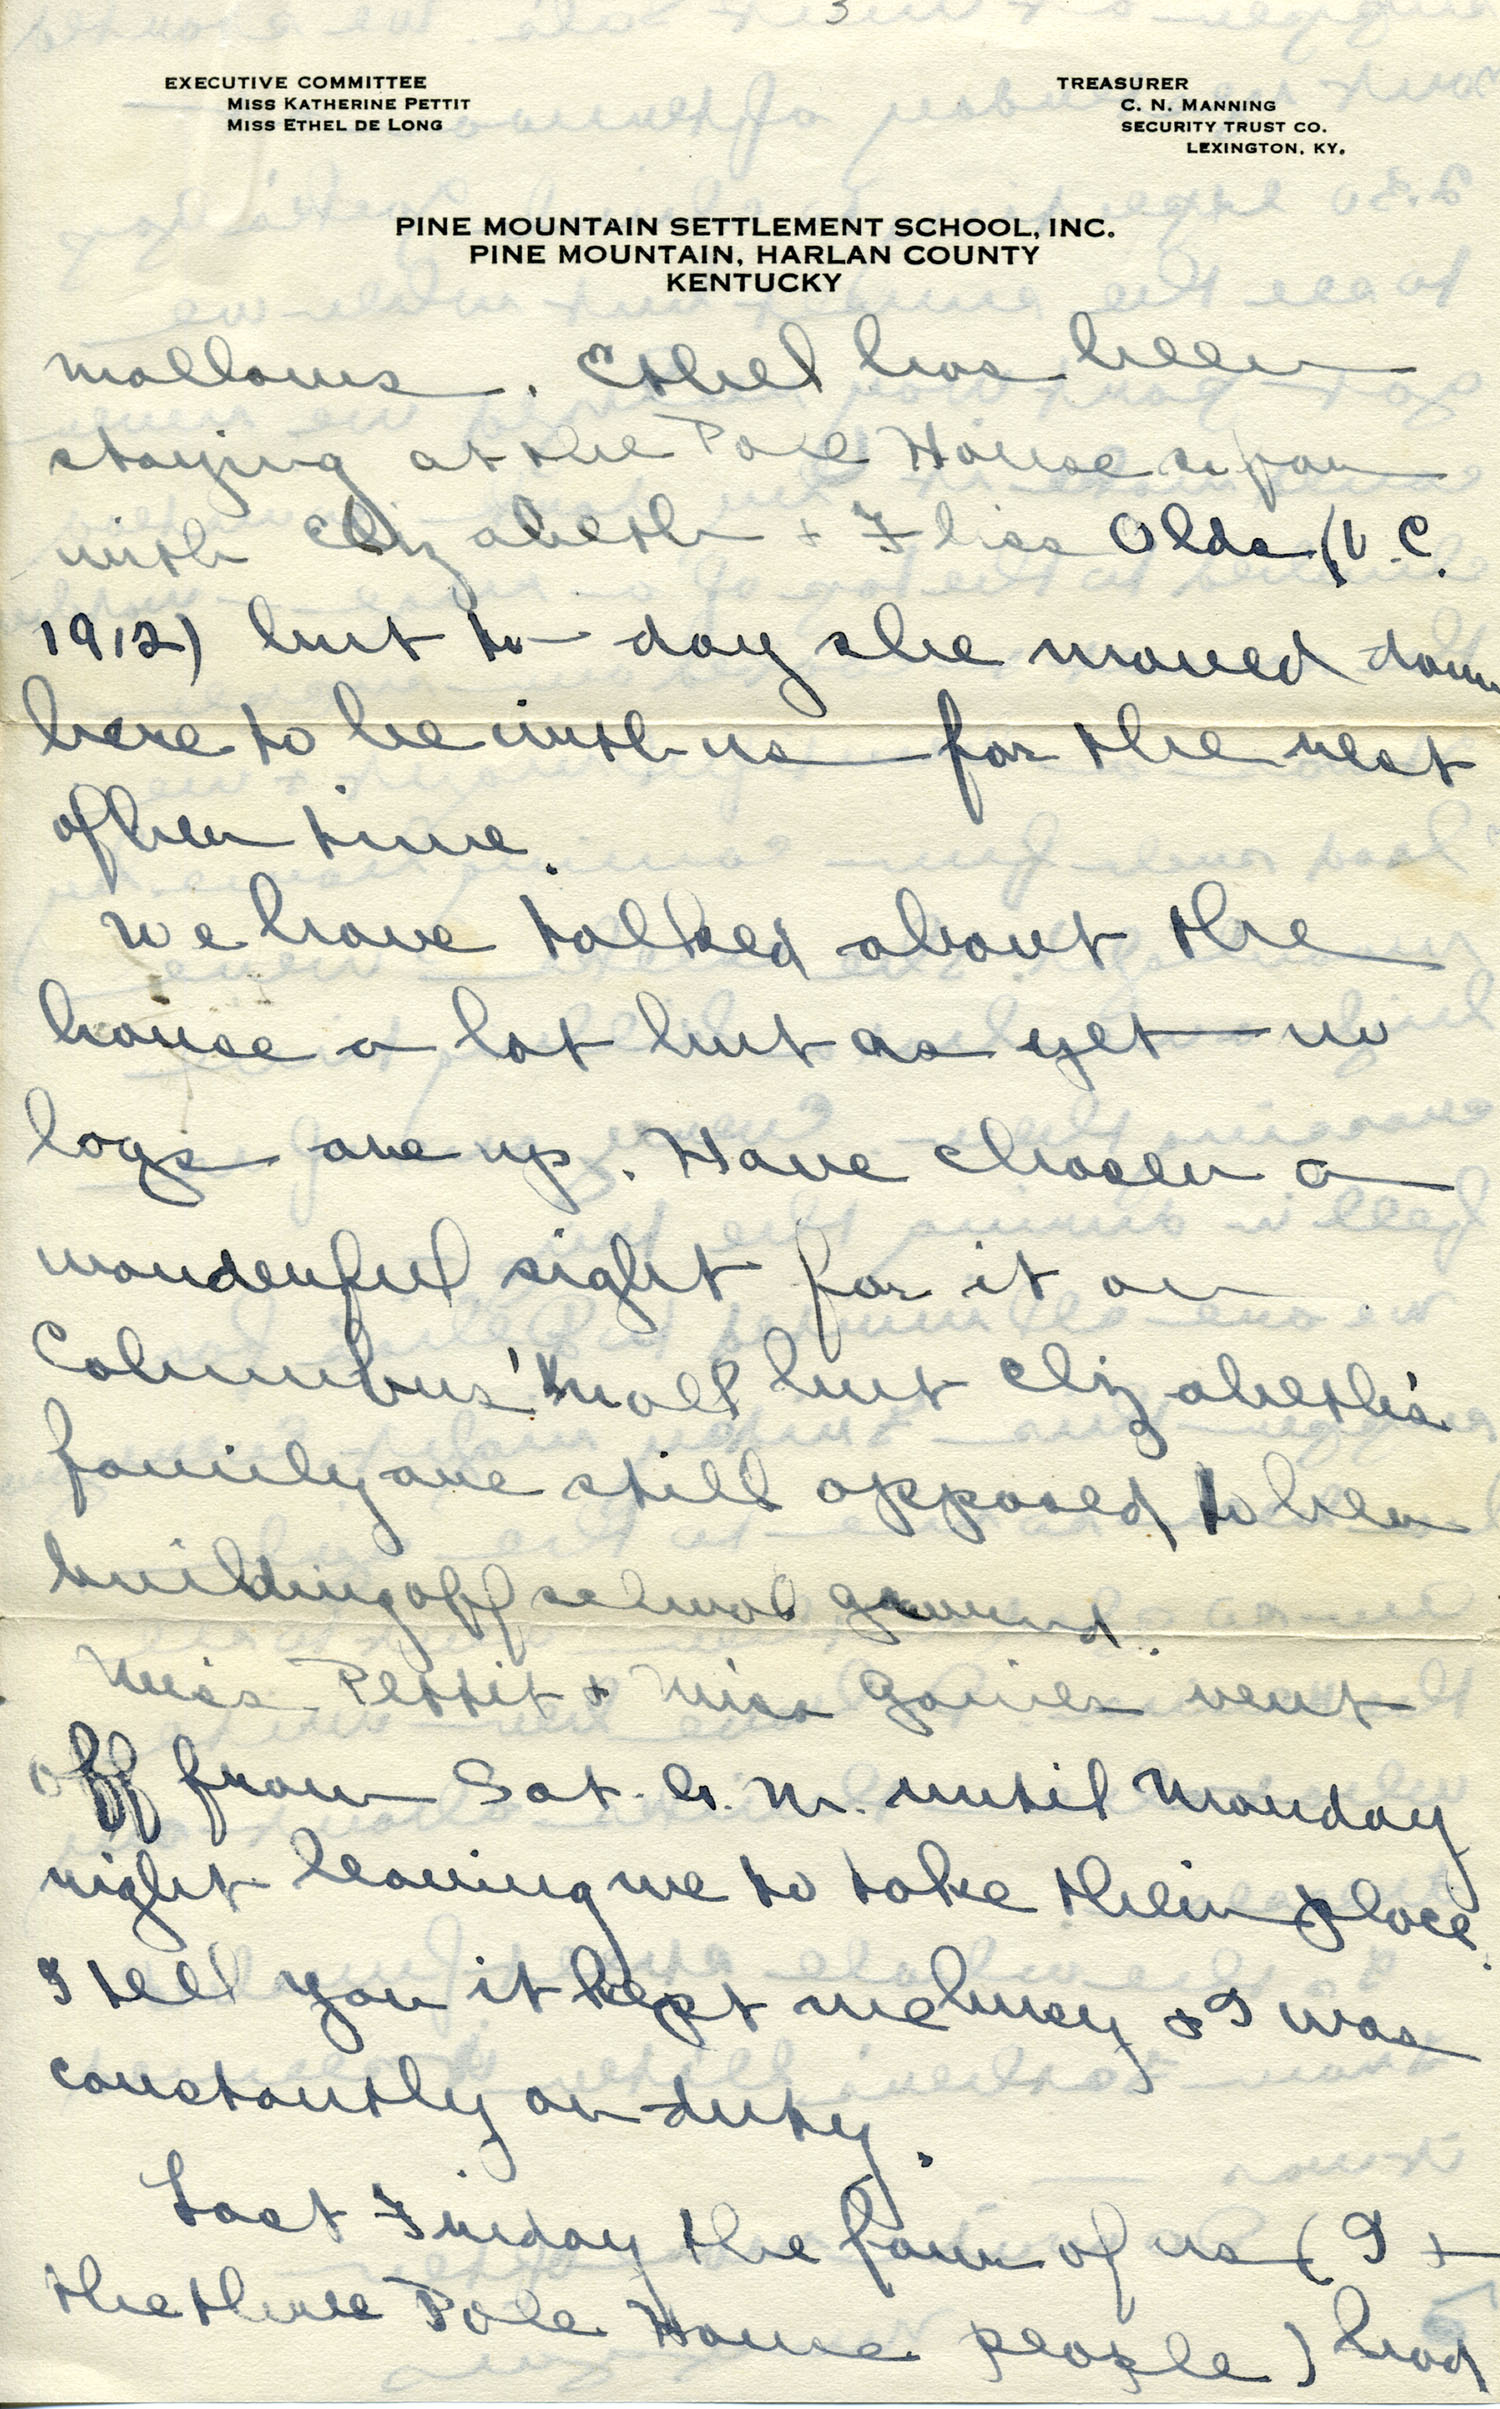 3
EXECUTIVE COMMITTEE
MISS KATHERINE PETTIT
MISS ETHEL DE LONG
TREASURER
C. N. MANNING
SECURITY TRUST CO.
LEXINGTON, KY.
PINE MOUNTAIN SETTLEMENT SCHOOL, INC.
PINE MOUNTAIN, HARLAN COUNTY
KENTUCKY
mallows. Ethel has been
staying at the Pole House so far
with Elizabeth + Miss Olds (V.C.
1912) but to-day she moved down
here to be with us for the rest
of her time.
We have talked about the
house a lot but as yet no
logs are up. Have chosen a
wonderful sight for it on
Columbus' Knoll but Elizabeth's
family are still opposed to her
building off school ground.
Miss Pettit + Miss Gaines went
off from Sat. a.m. until Monday
night leaving me to take their place.
I tell you it kept me busy + I was
constantly on duty.
Last Friday the four of us (I +
the three Pole House people) had